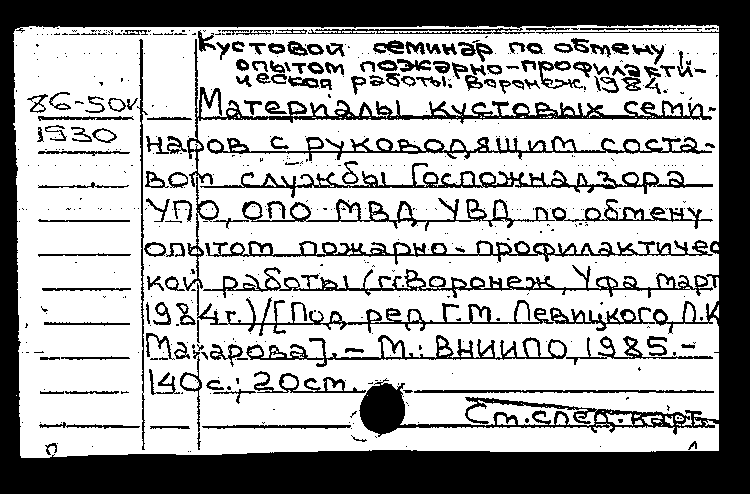 Кустовой семинар по обмену
опытом пожарно-профилакти-
ческой работы. Воронеж, 1984.
86-50к Материалы кустовых семи-
1930 наров с руководящим соста-
вом службы Госпожнадзора
УПО, ОПО МВД, УВД по обмену
опытом пожарно-профилактичес
кой работы (гг. Воронеж, Уфа, март
1984г.)/[Под ред. Г.М. Левицкого, Л.К
Макарова]. – М.: ВНИИПО, 1985. –
140с.; 20см.
См. след. карт.